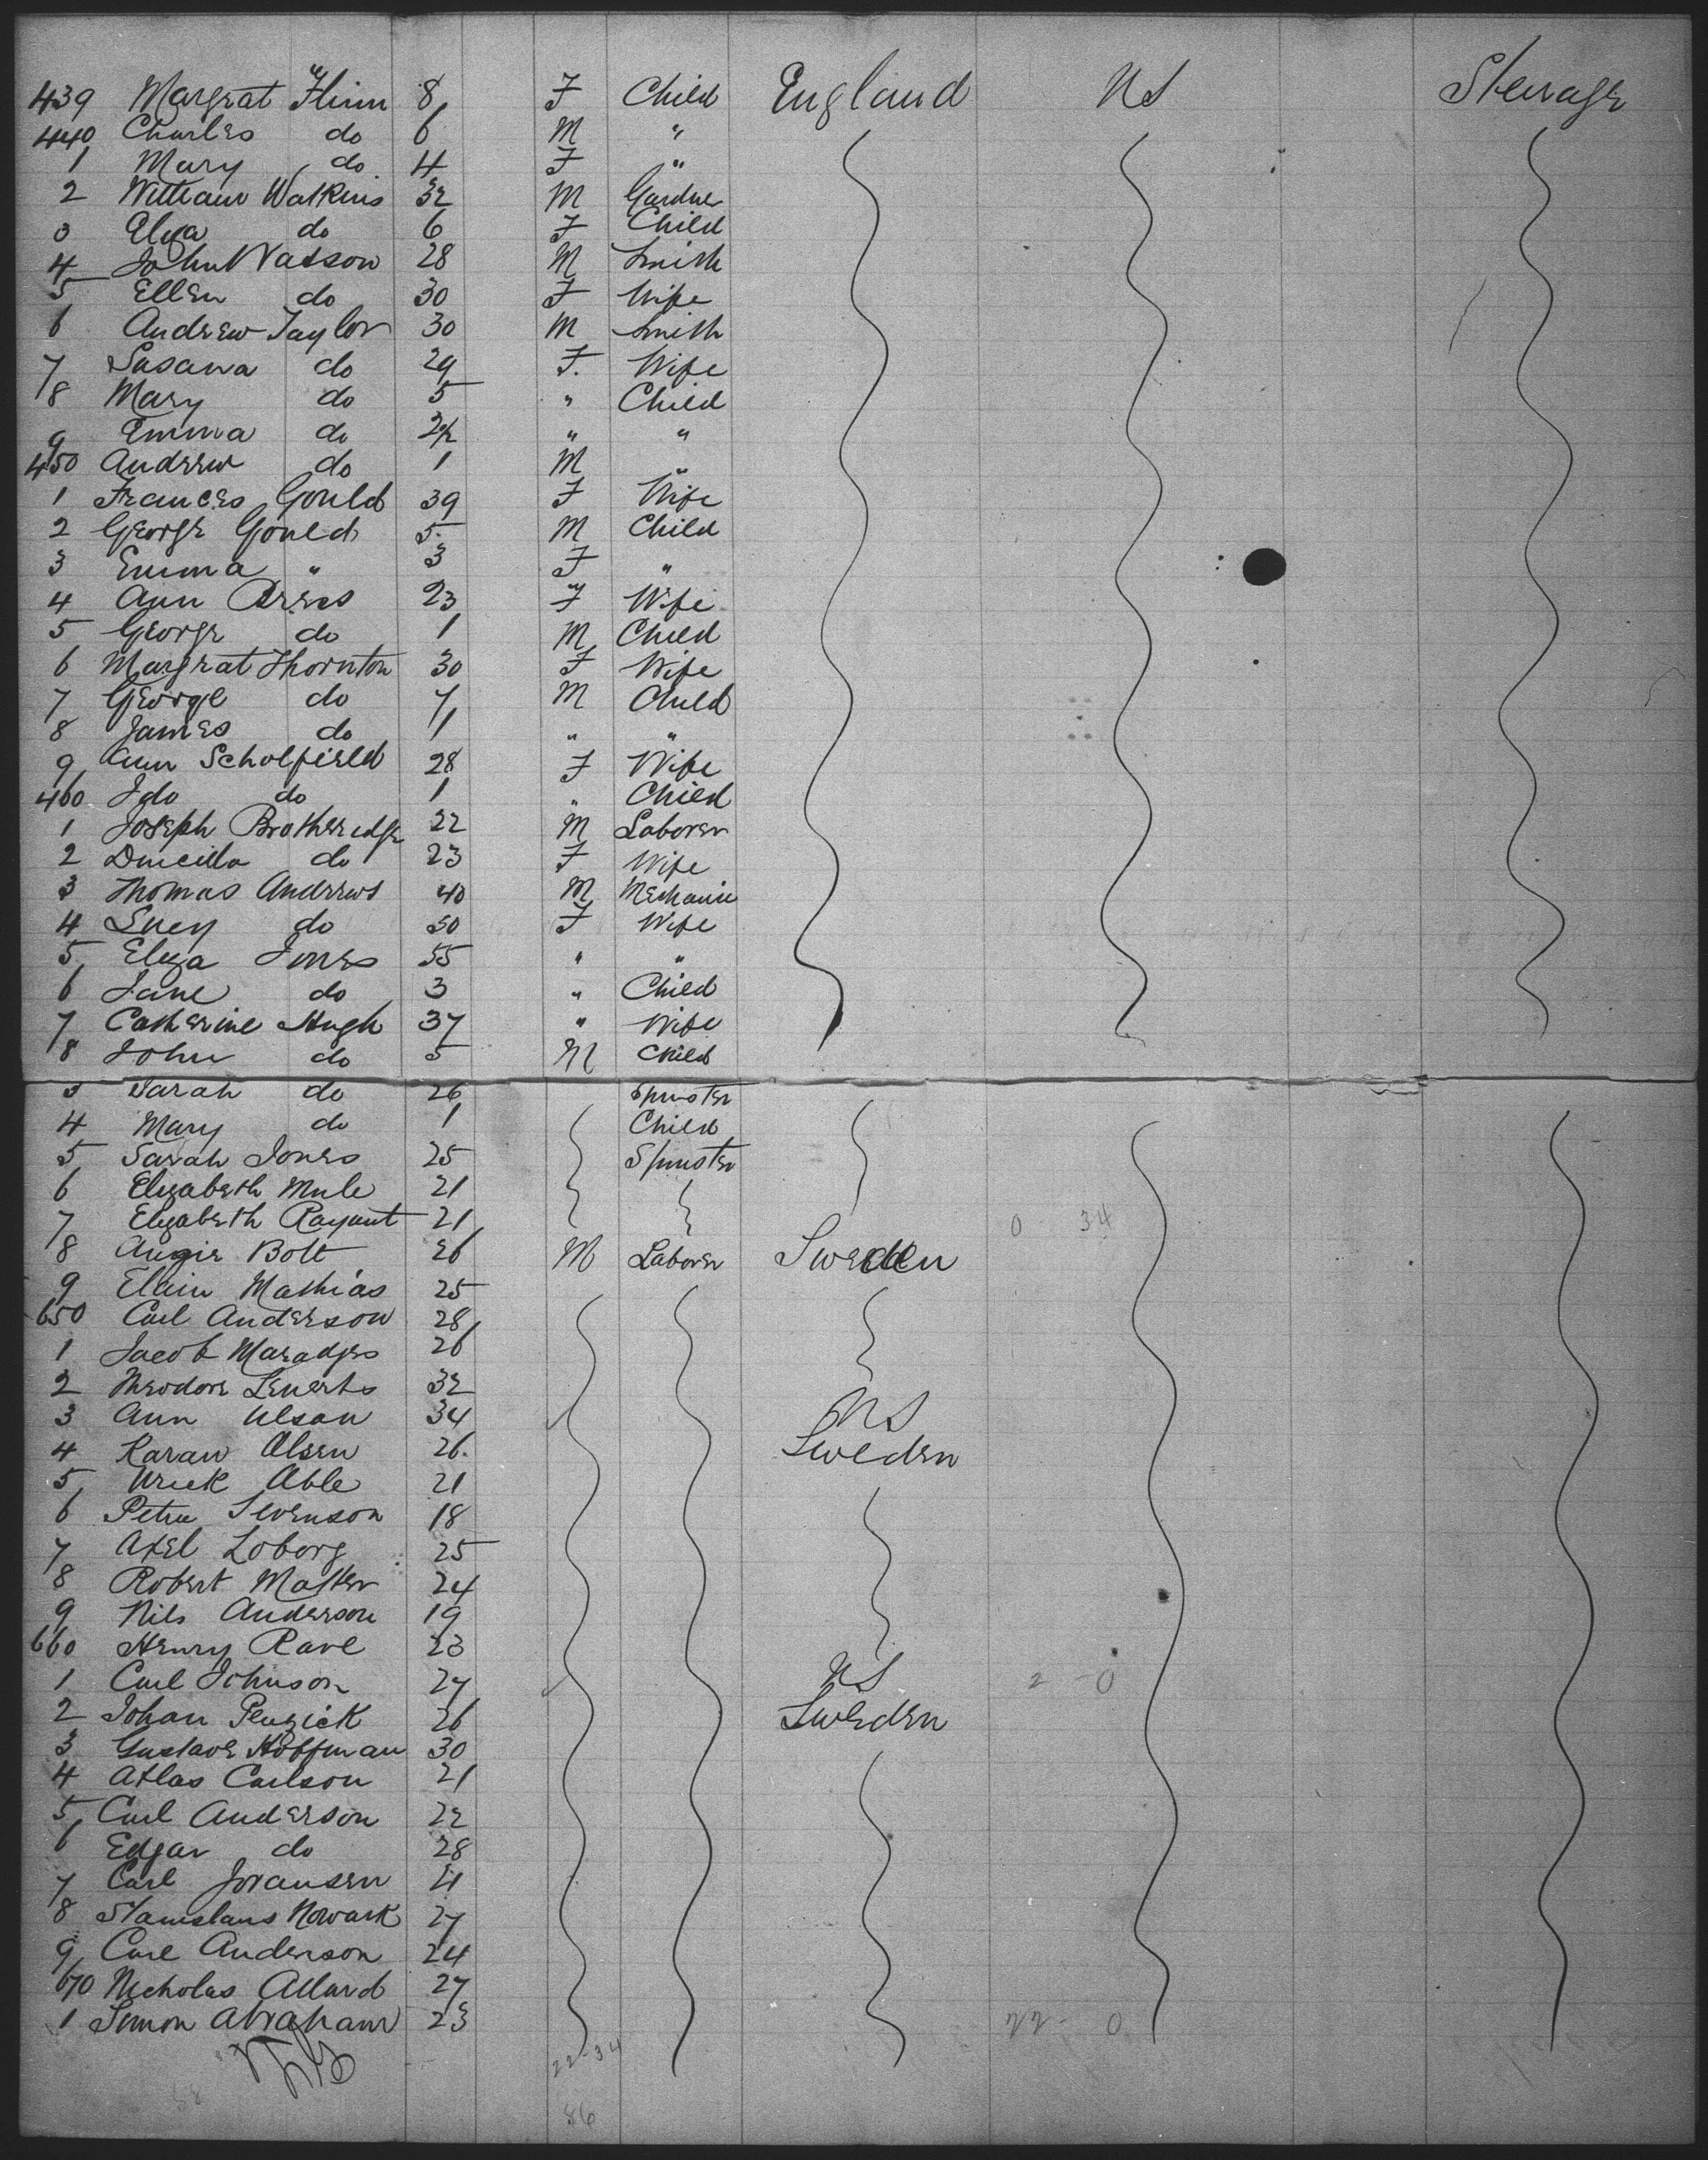 439 Margrat Flinn 8 F Child England US Steerage
440 Charles do 6 M "
1 Mary do 4 F "
2 William Watkins 32 M Gardner
3 Elya do 6 F Child
4 John Watson 28 M Smith
5 Ellen do 30 F Wife
6 Andrew Taylor 30 M Smith
7 Susana do 29 F. Wife
8 Mary do 5 " Child
9 Emma do 2½ " "
450 Andrew do 1 M "
1 Frances Gould 39 F Wife
2 George Gould 5 M Child
3 Emma " 3 F "
4 Ann 23 F Wife
5 George do 1 M Child
6 Margrat Thornton 30 F Wife
7 George do 7 M Child
8 James do 1 " "
9 Ann Scholfield 28 F Wife
460 Ida do 1 " Child
1 Joseph Brotheridge 22 M Laborer
2 Drucilla do 23 F Wife
3 Thomas Andrews 40 M Mechanic
4 Lucy do 50 F Wife
5 Elyza Jones 55 " "
6 Jane do 3 " Child
7 Catherine Hugh 37 " Wife
8 John do 5 M Child
3 Sarah do 26 Spinster
4 Mary do 1 Child
5 Sarah Jones 25 Spinster
6 Elyzabeth Mule 21
7 Elyzabeth Rayant 21 0 34
8 Augie Bolt 26 M Laborer Sweden
9 Elain Mathias 25
650 Carl Anderson 28
1 Jacob 26
2 Theodore Lenerts 32
3 Ann Ulsan 34 US
4 Karan Olsen 26. Sweden
5 Able 21
6 Peter Svenson 18
7 Axel Loborg 25
8 Robert 24
9 Nils Anderson 19
660 Henry Rave 23
1 Carl Johnson 27 US 2 0
2 Johan 26 Sweden
3 Gustave Hoffman 30
4 Atlas Carlson 21
5 Carl Anderson 22
6 Edgar do 28
7 Carl Joransen 21
8 Stanislaus Nowark 27
9 Carl Anderson 24
670 Nicholas Allard 27
1 Simon Abraham 23 22- 0
22-34
86